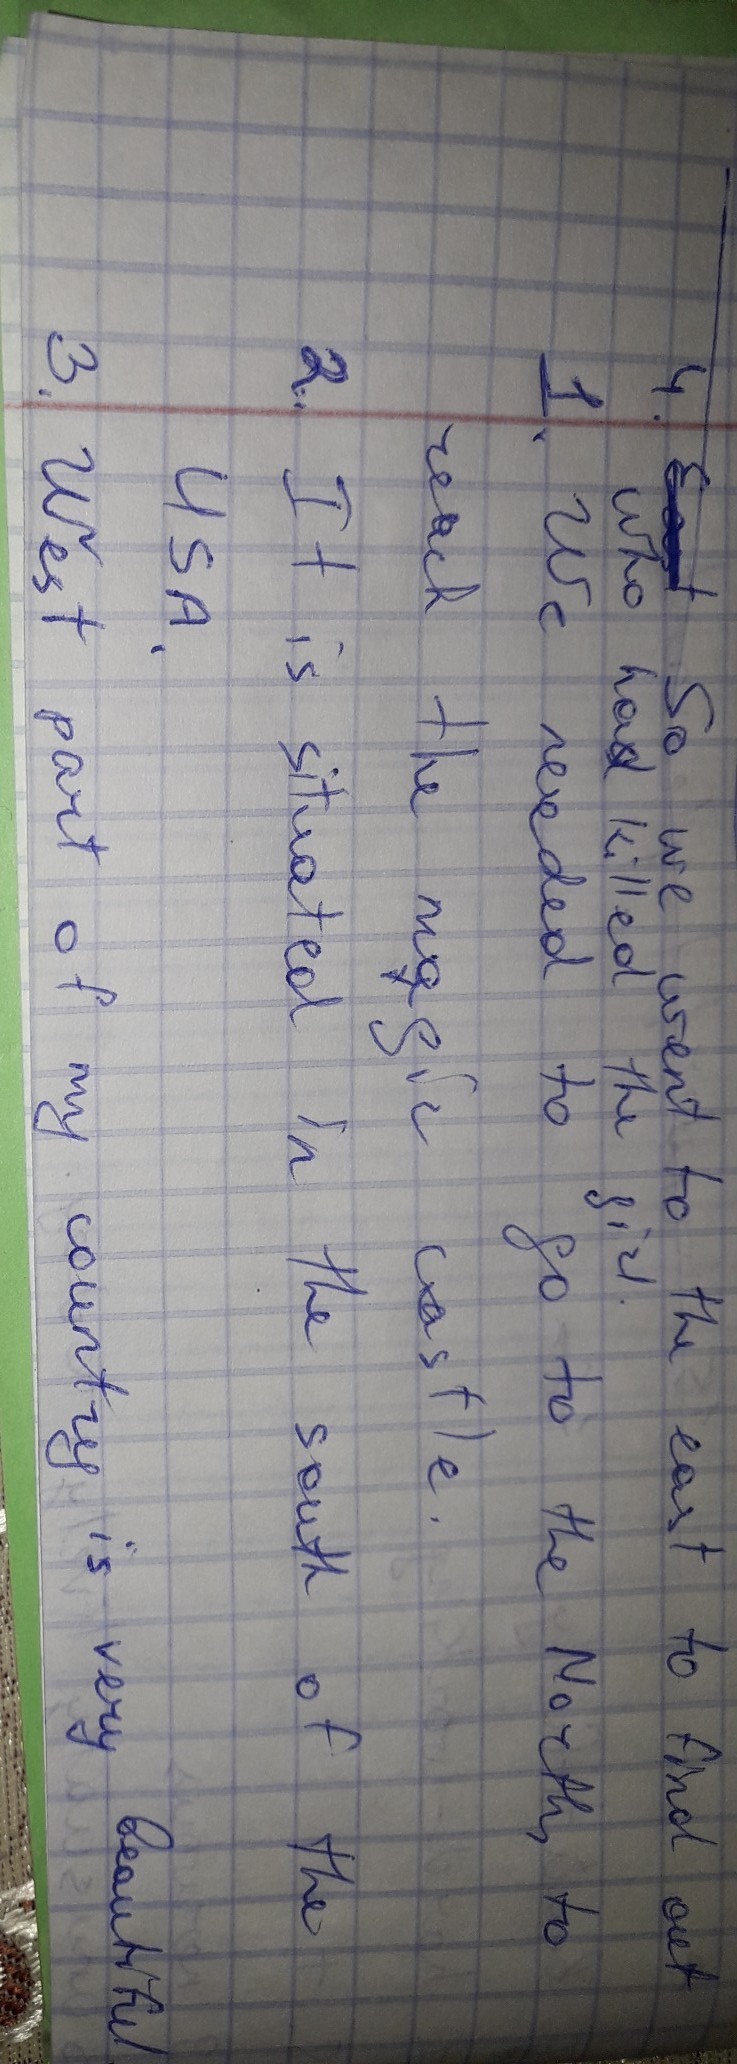 4. So we went to the east to find out
who had killed the girl.
1. We needed to go to the North, to
reach the magic castle.
2. It is situated in the south of the
USA.
3. West part of my country is very beautiful